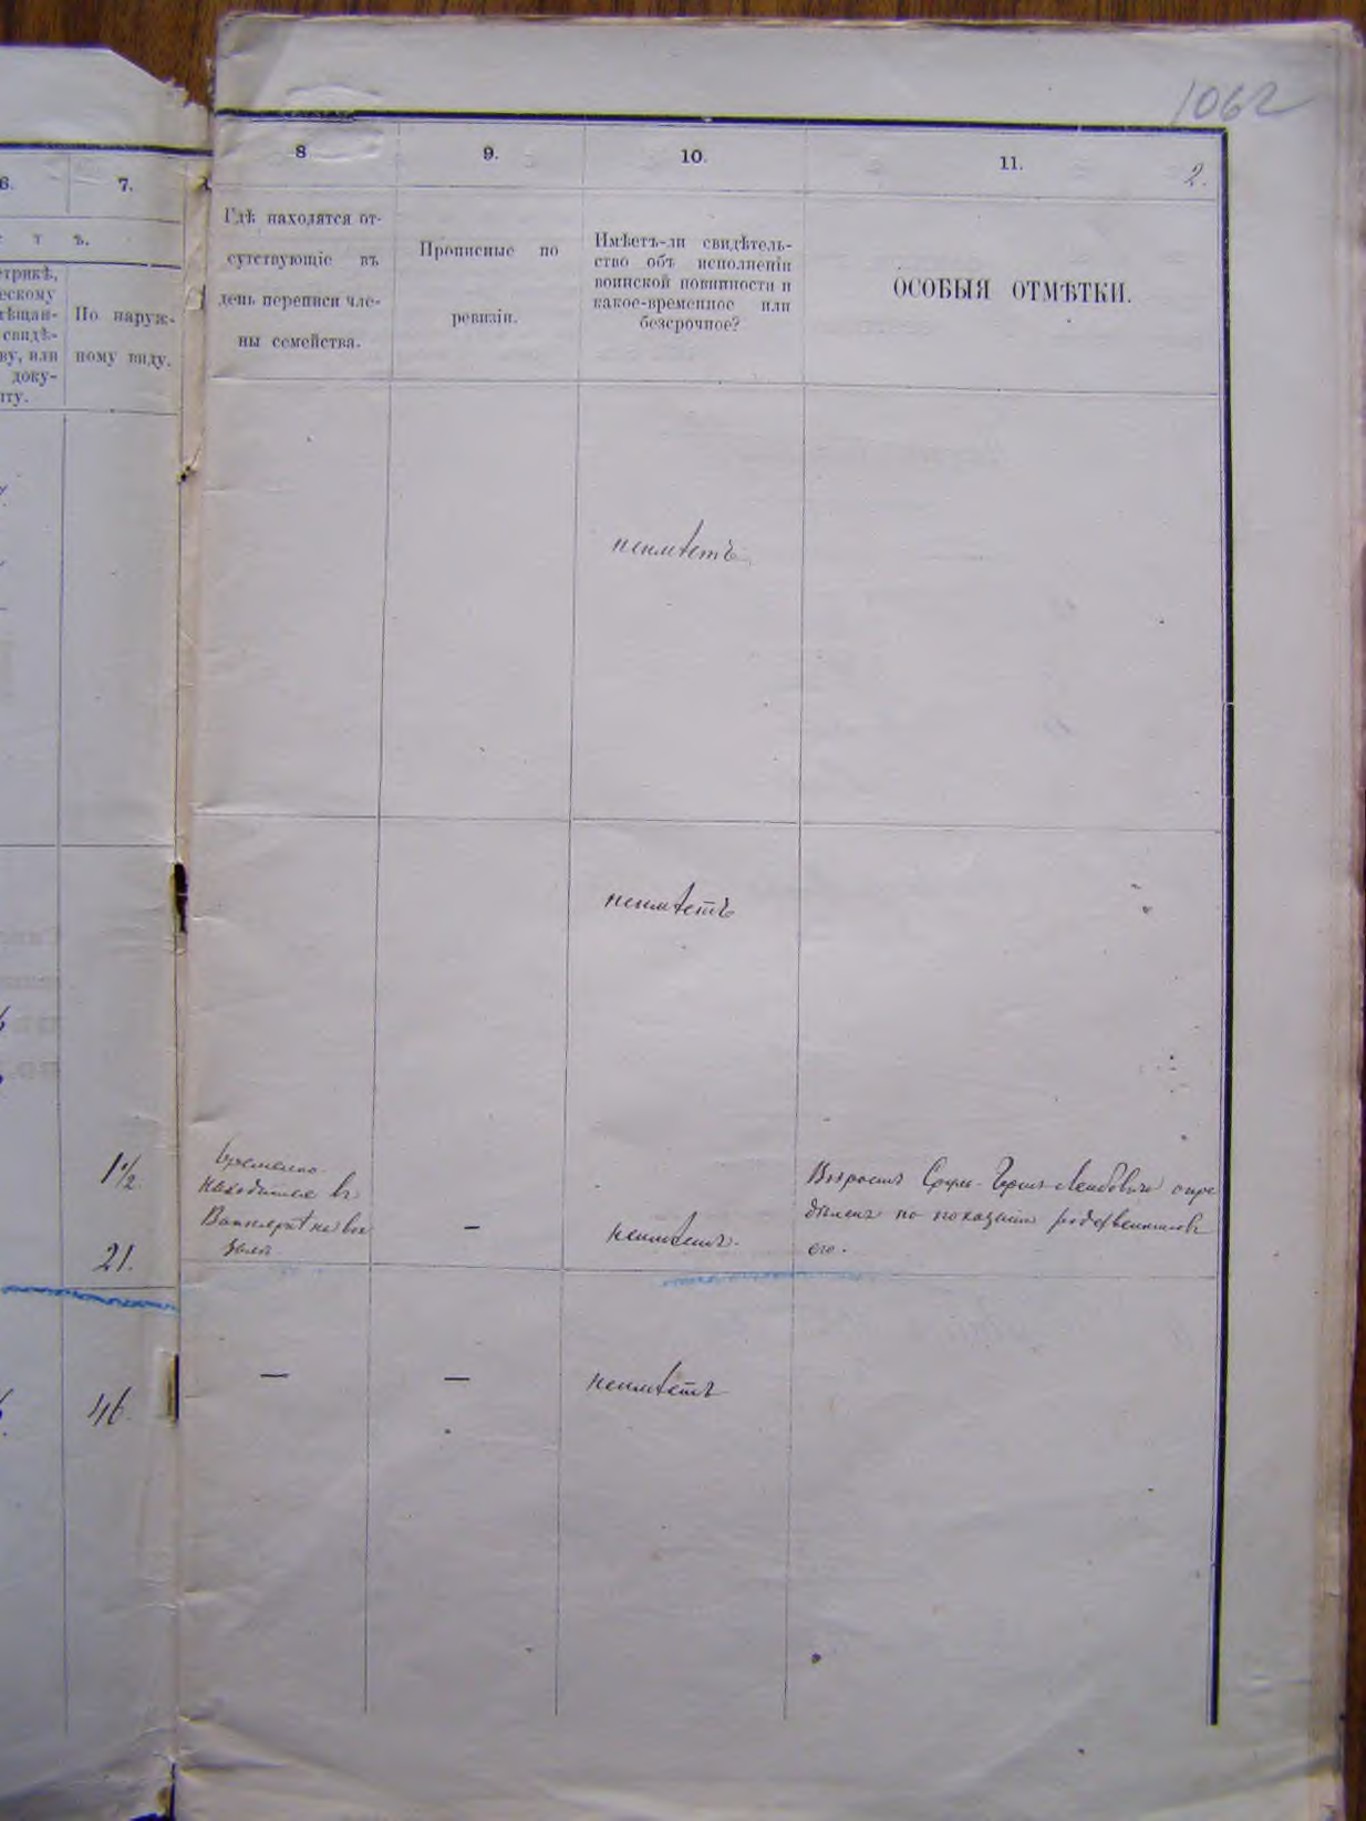 1062
6.
7.
8
9.
10.
11.
2.
т ъ.
трикѣ,
ескому
ѣщан-
свидѣ-
ву, или
доку-
нту.
По наруж-
ному виду.
Гдѣ находятся от-
сутствующіе въ
день переписи чле-
ны семейства.
Прописные по
ревизіи.
Имѣетъ-ли свидѣтель-
ство объ исполненіи
воинской повинности и
какое-временное или
безсрочное?
ОСОБЫЯ ОТМѢТКИ.
неимѣетъ
неимѣетъ
1½
Временно
находится въ
21.
—
неимѣетъ.
Возрастъ Сруль-Герша Лейбовича опре
дѣленъ по показанію родственниковъ
его.
46.
—
—
неимѣетъ